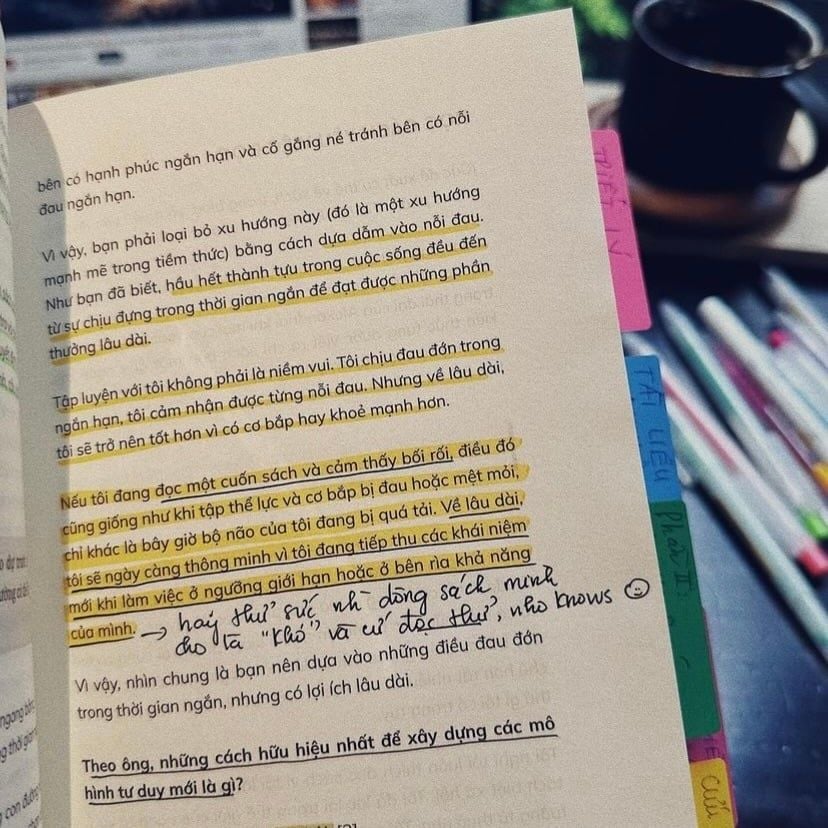 bên có hạnh phúc ngắn hạn và cố gắng né tránh bên có nỗi
đau ngắn hạn.
Vì vậy, bạn phải loại bỏ xu hướng này (đó là một xu hướng
mạnh mẽ trong tiềm thức) bằng cách dựa dẫm vào nỗi đau.
Như bạn đã biết, hầu hết thành tựu trong cuộc sống đều đến
từ sự chịu đựng trong thời gian ngắn để đạt được những phần
thưởng lâu dài.
Tập luyện với tôi không phải là niềm vui. Tôi chịu đau đớn trong
ngắn hạn, tôi cảm nhận được từng nỗi đau. Nhưng về lâu dài,
tôi sẽ trở nên tốt hơn vì có cơ bắp hay khoẻ mạnh hơn.
Nếu tôi đang đọc một cuốn sách và cảm thấy bối rối, điều đó
cũng giống như khi tập thể lực và cơ bắp bị đau hoặc mệt mỏi,
chỉ khác là bây giờ bộ não của tôi đang bị quá tải. Về lâu dài,
tôi sẽ ngày càng thông minh vì tôi đang tiếp thu các khái niệm
mới khi làm việc ở ngưỡng giới hạn hoặc ở bên rìa khả năng
của mình. → hay thử sức nh dòng sách mình
cho là "khó" và cứ đọc thử, who knows
Vì vậy, nhìn chung là bạn nên dựa vào những điều đau đớn
trong thời gian ngắn, nhưng có lợi ích lâu dài.
Theo ông, những cách hữu hiệu nhất để xây dựng các mô
hình tư duy mới là gì?
TÀI LIỆU
Phần II: